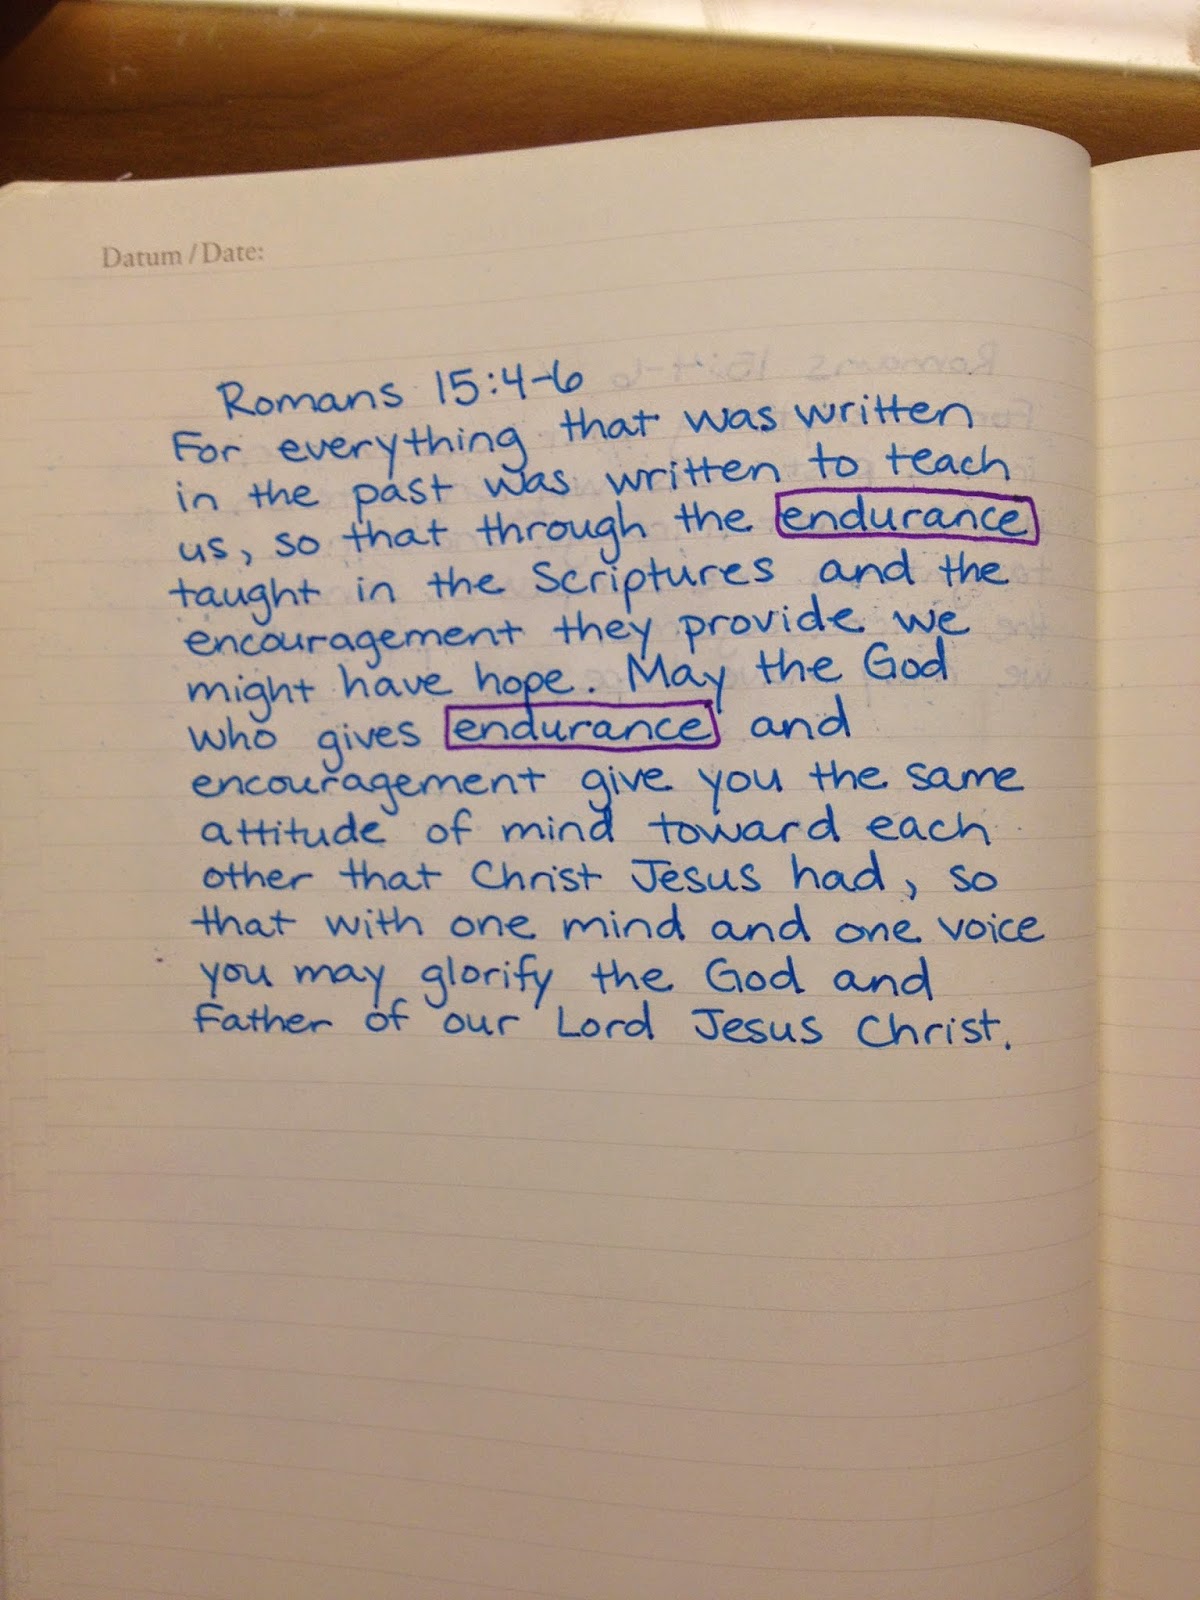 Datum / Date:
Romans 15:4-6
For everything that was written
in the past was written to teach
us, so that through the endurance
taught in the Scriptures and the
encouragement they provide we
might have hope. May the God
who gives endurance and
encouragement give you the same
attitude of mind toward each
other that Christ Jesus had, so
that with one mind and one voice
you may glorify the God and
Father of our Lord Jesus Christ.